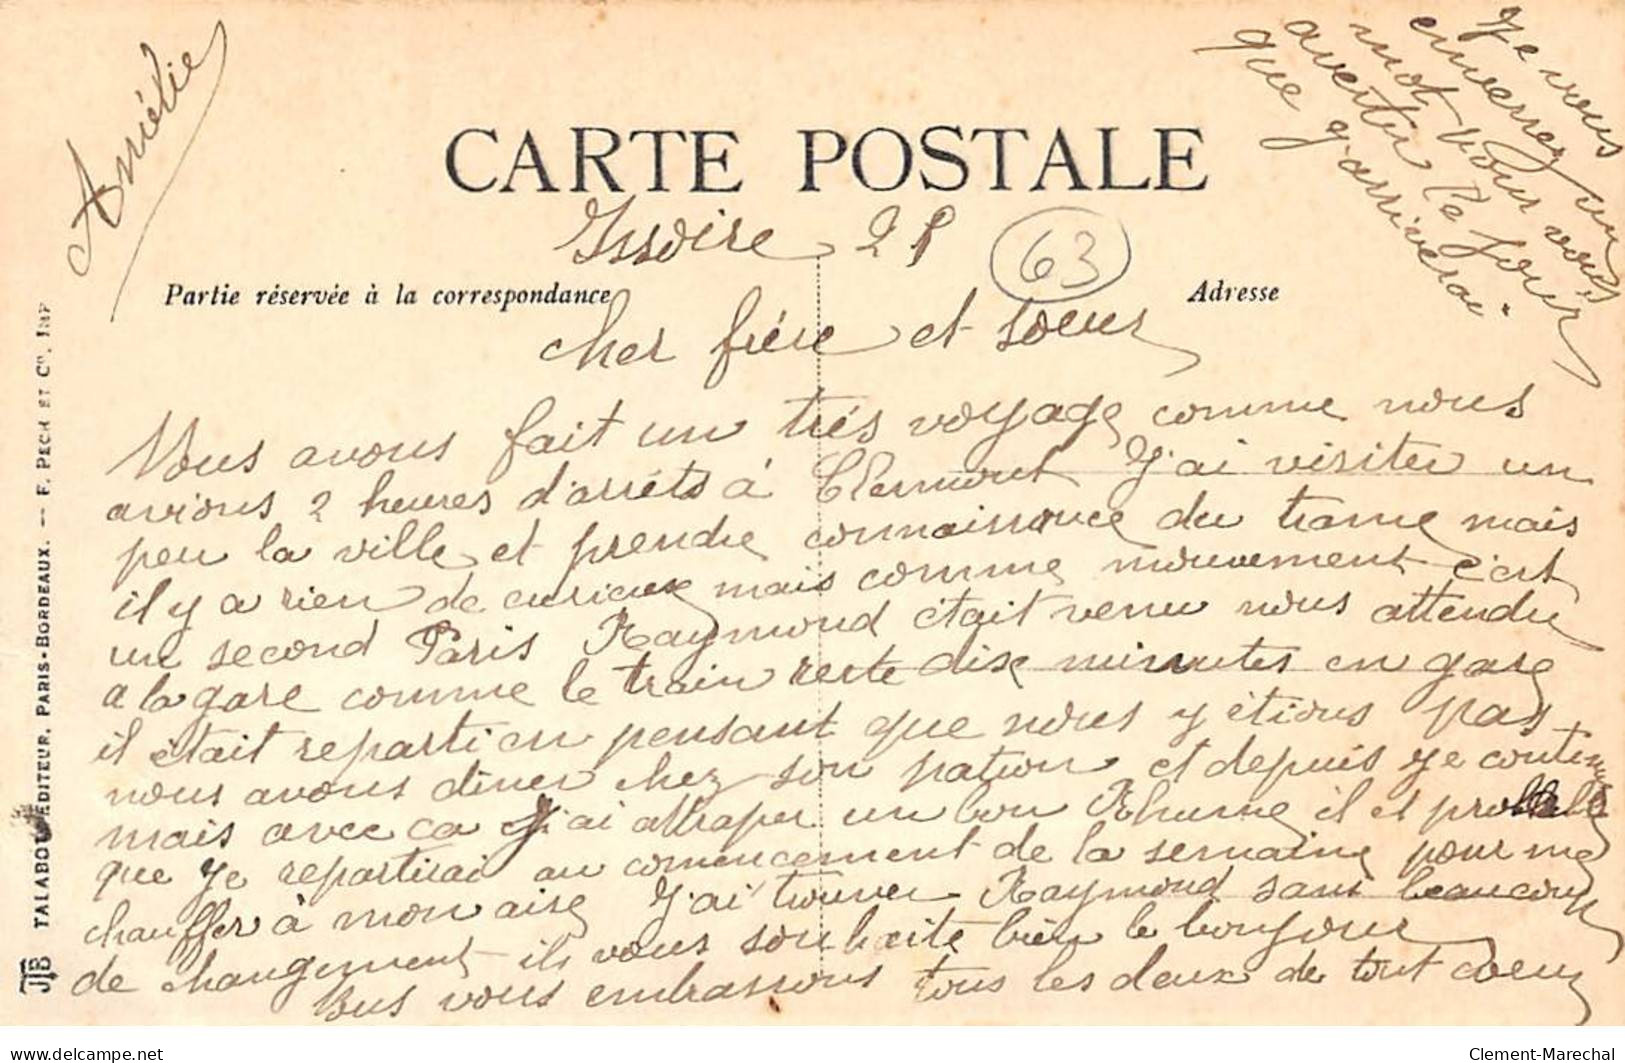 Amélie
CARTE POSTALE
Issoire 21
63
Partie réservée à la correspondance
Adresse
cher frére et soeur
Vous avons fait un trés voyage comme nous
avions 2 heures d'arréts à Clermont J'ai visiter un
peu la ville et prendre connaissance du trame mais
il y a rien de curieux mais comme mouvement c'est
un second Paris Raymond était venu nous attendre
a la gare comme le train reste dix minutes en gare
il était reparti en pensant que nous y étions pas
nous avons diner chez son patron et depuis je continue
mais avec ca J'ai attraper un bon Rhume il et probable
que je repartirai au comencement de la semaine pour me
chauffer à mon aise J'ai trouver Raymond sans beaucoup
de changement ils vous souhaite bien le bonjour
Bus vous embrassons tous les deux de tout coeur
je vous
enverrez un
mot pour vous
avertir le jour
que j'arriverai.
TALABOT EDITEUR, PARIS-BORDEAUX. — F. PECH ET Cie, IMP
JTB
www.delcampe.net
Clement-Marechal